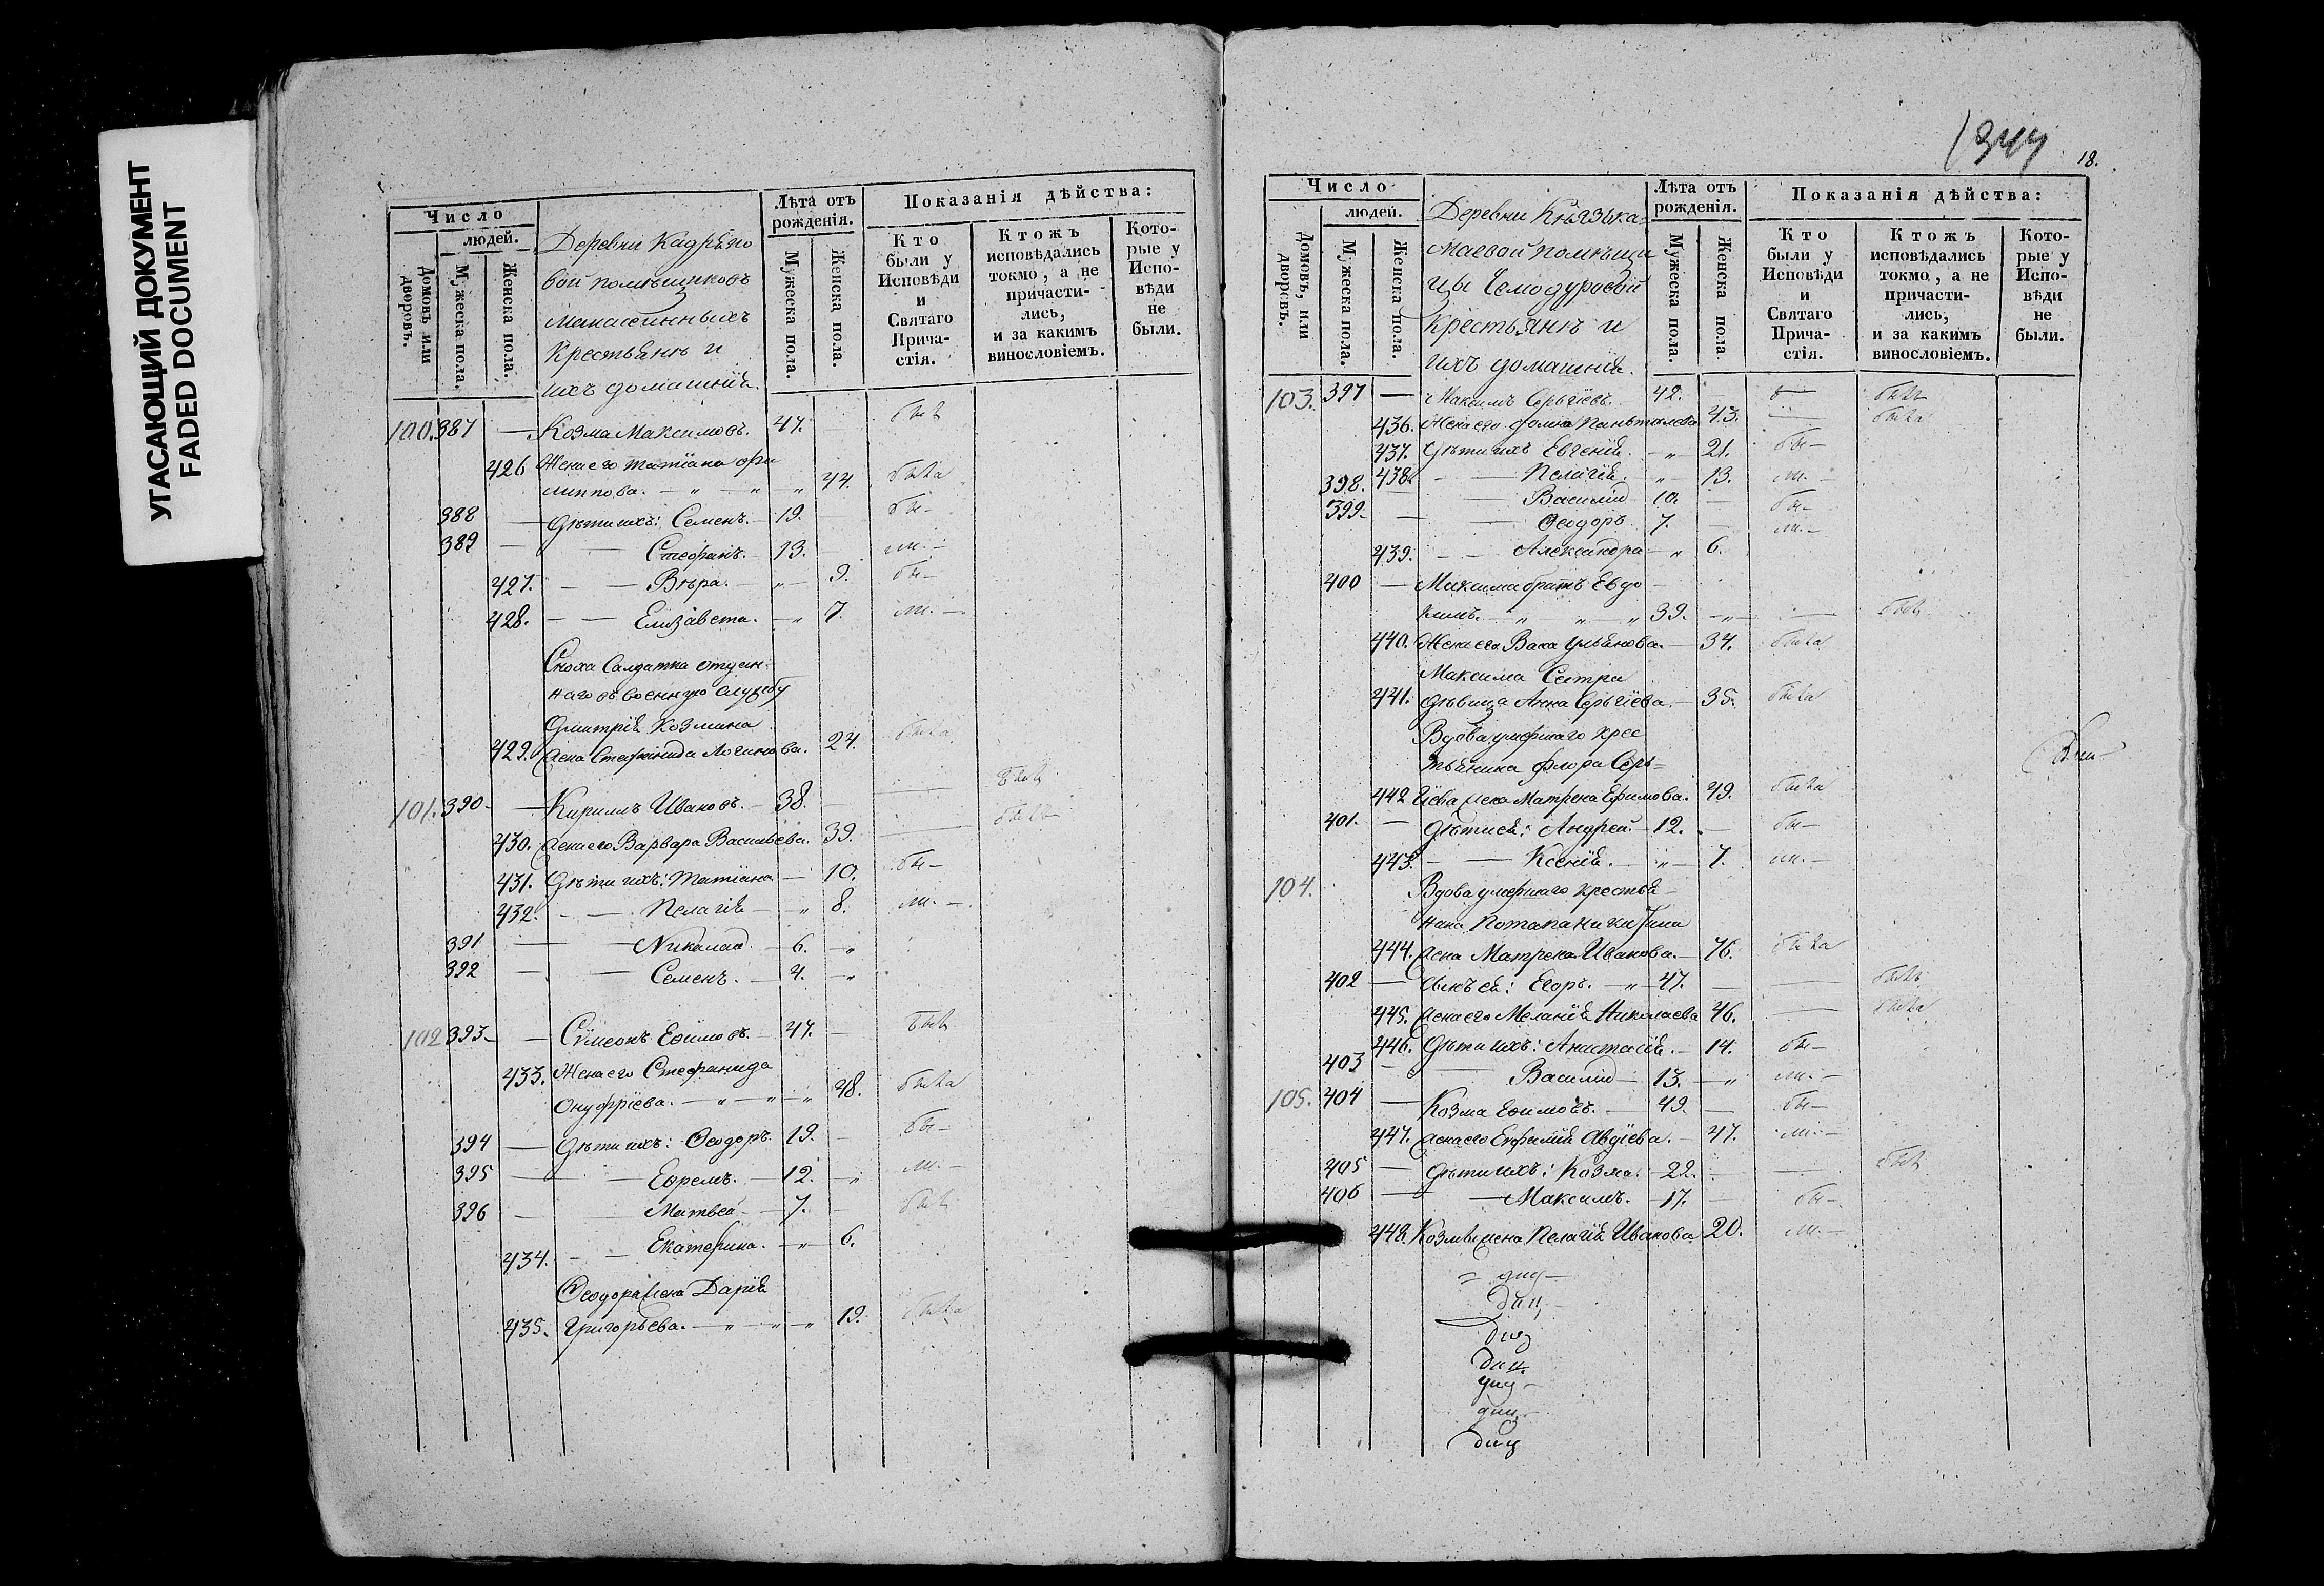 УГАСАЮЩИЙ ДОКУМЕНТ
FADED DOCUMENT
Число
людей.
Домовъ или дворовъ.
Мужеска пола.
Женска пола.
Деревни
вой помѣщиковъ
крестьянъ и
ихъ домашнія.
Лѣта отъ рожденія.
Мужеска пола.
Женска пола.
Показанія дѣйства:
Кто были у Исповѣди и Святаго Причастія.
Ктожъ исповѣдались токмо, а не причастились, и за какимъ винословіемъ.
Которые у Исповѣди не были.
100. 387 — Козма Максимовъ. 47. — былъ
426 Жена его Татіана Фи
липпова. — " — " — " 44. была
388 — Дѣти ихъ: Семенъ. — 19. — бы—
389 — — Стефанъ. — 13. — ли. —
427. — — Вѣра. — " — 9. бы—
428. — — Елизавета. — " 7. ли. —
Сноха Салдатка отдан
наго въ военную службу
Дмитрія Козмина
429. жена Стефанида Логинова. 24. была
101. 390 — — Кирилъ Ивановъ. — 38. — — былъ
430. жена его Варвара Васильева. 39. — была
431. Дѣти ихъ: Татіана — 10. бы—
432. — — Пелагія — " 8. ли. —
391 — — Николай. — 6. — "
392 — — Семенъ. — 4. — "
102 393 — — Сѵмеонъ Ефимовъ. — 47. — былъ
433. Жена его Стефанида
Онуфріева. — " — " — " 48. была
394 — Дѣти ихъ: Ѳеодоръ. 19. — бы—
395 — — Ефремъ. — 12. — " ли. —
396 — — Матвей — 7. — былъ
434. — — Екатерина. — " — 6.
Ѳеодора жена Дарія
435. Григорьева. — " — " — " 19. была
1344
18.
Число
людей.
Домовъ, или дворовъ.
Мужеска пола.
Женска пола.
Деревни Княгъка
маевой помѣщи
цы Чемодуровой
Крестьянъ и
ихъ домашнія.
Лѣта отъ рожденія.
Мужеска пола.
Женска пола.
Показанія дѣйства:
Кто были у Исповѣди и Святаго Причастія.
Ктожъ исповѣдались токмо, а не причастились, и за какимъ винословіемъ.
Которые у Исповѣди не были.
103. 397 — Максимъ Сергіевъ. 42. — былъ
436. Жена его Домна 43. — была
437. Дѣти ихъ Евгенія. — " — 21. бы—
438. — — Пелагія. — " — 13. ли. —
398. — — Василій 10. — бы—
399. — — Ѳедоръ 7. — ли. —
439. — — Александра — " 6.
400 — Максима братъ Евдо
кимъ. — " " " 39. — " — — былъ
440. Жена его Васа Ульянова. — 34. была
Максима Сестра
441. дѣвица Анна Сергіева. — 35. была
Вдова умершаго крес
тьянина Флора Сер=
442 гіева жена Матрена Ефимова. 49. была
401. — Дѣти ея: Андрей. — 12. — бы—
443. — — Ксенія. — " — 7. ли. —
104. Вдова умершаго крестья
нина Потапа Никитина
444. жена Матрена Иванова. — 76. была
402 — Сынъ ея: Егоръ. — " — 47. — — былъ
445. жена его Меланія Николаева 46. — была
446. Дѣти ихъ: Анастасія. — 14. бы—
403 — — Василій — 13. — " ли. —
105. 404 — Козма Ефимовъ. — 49. — бы—
447. жена его Евфимія Авдіева. — 47. ли. —
405 — Дѣти ихъ: Козма. — 22. — — былъ
406 — — Максимъ. — 17. — бы—
448. Козмы жена Пелагія Иванова 20. ли. —